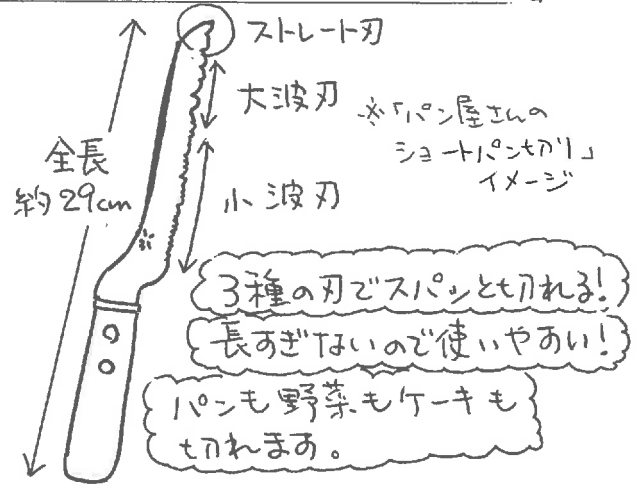 ストレート刃
大波刃
※「パン屋さんの
ショートパン切り」
イメージ
全長
約29cm
小波刃
3種の刃でスパッと切れる!
長すぎないので使いやすい!
パンも野菜もケーキも
切れます。